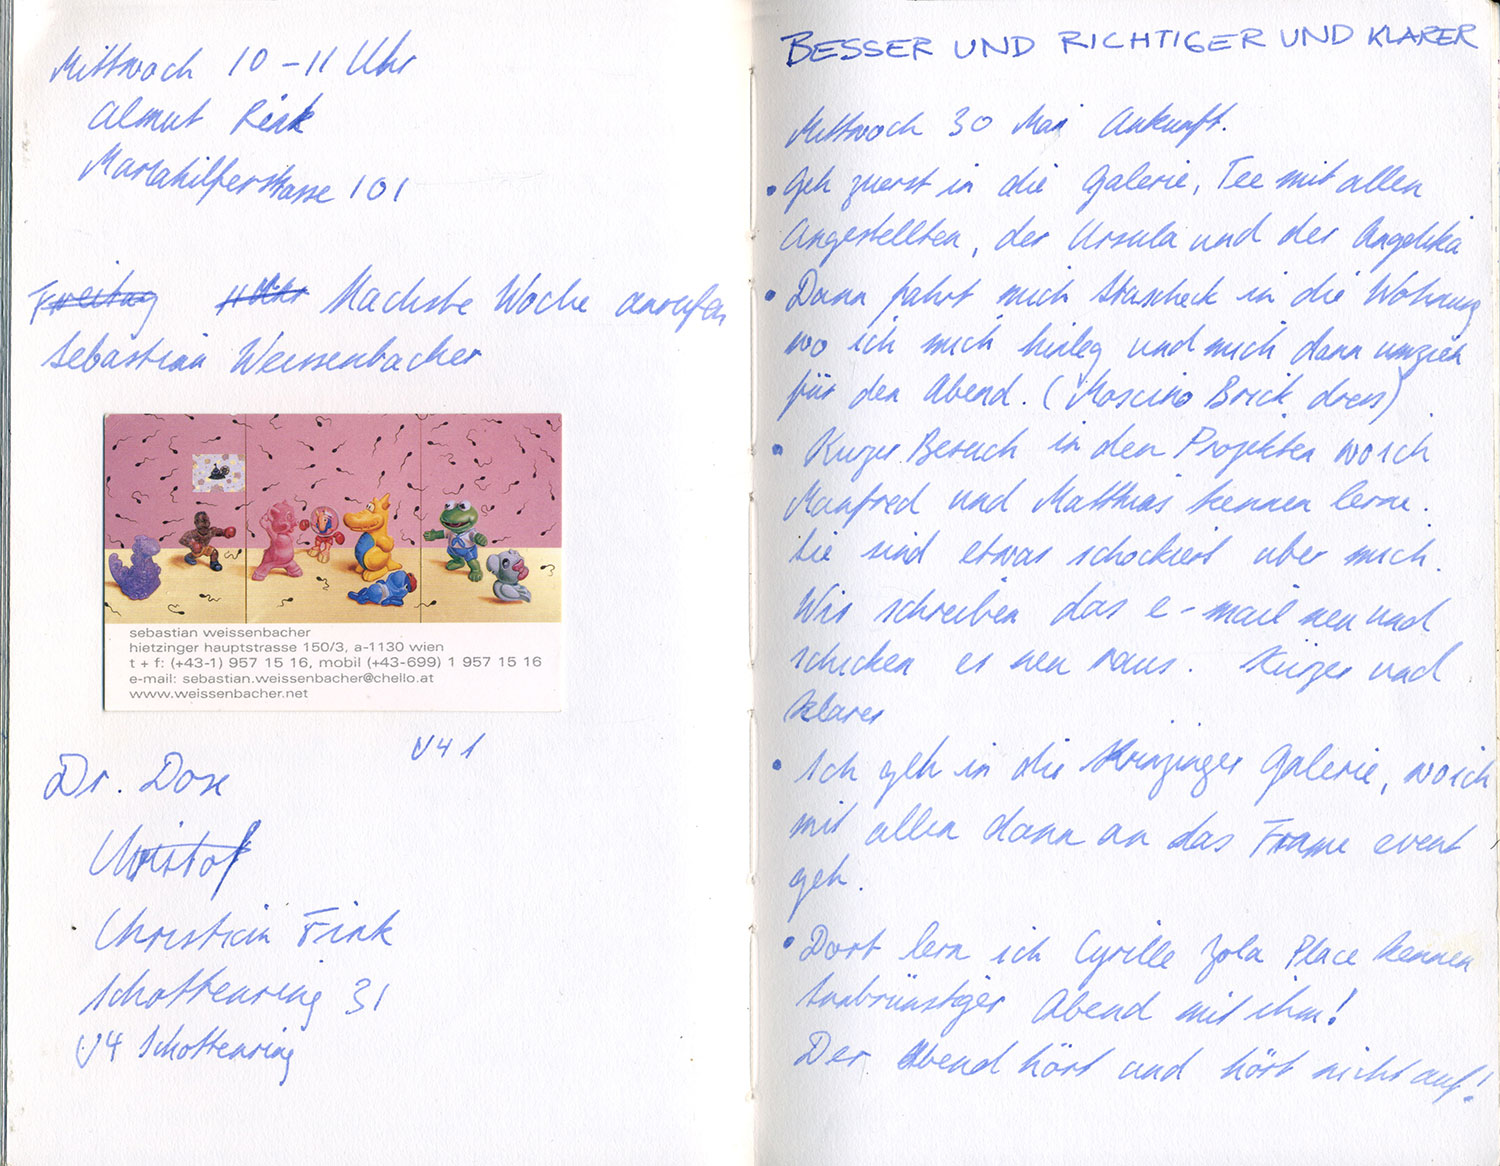 Mittwoch 10 – 11 Uhr
Almut Rink
Mariahilferstrasse 101
Freitag 11 Uhr Nächste Woche anrufen
Sebastian Weissenbacher
sebastian weissenbacher
hietzinger hauptstrasse 150/3, a-1130 wien
t + f: (+43-1) 957 15 16, mobil (+43-699) 1 957 15 16
e-mail: sebastian.weissenbacher@chello.at
www.weissenbacher.net
U4 1
Dr. Dox
Christof
Christian Fink
Schottenring 31
U4 Schottenring
BESSER UND RICHTIGER UND KLARER
Mittwoch 30 Mai Ankunft.
• Geh zuerst in die Galerie, Tee mit allen
Angestellten, der Ursula und der Angelika
• Dann fahrt mich Strascheck in die Wohnung
wo ich mich hinleg und mich dann umzieh
für den Abend. (Moscino Brick dress)
• Kurzer Besuch in den Projekten wo ich
Manfred und Matthias kennen lerne.
Sie sind etwas schockiert über mich.
Wir schreiben das e-mail neu und
schicken es neu raus. Kürzer und
klarer
• Ich geh in die Krinzinger Galerie, wo ich
mit allen dann an das Frame event
geh.
• Dort lern ich Cyrille Zola Place kennen
Inbrünstiger Abend mit ihm!
Der Abend hört und hört nicht auf!